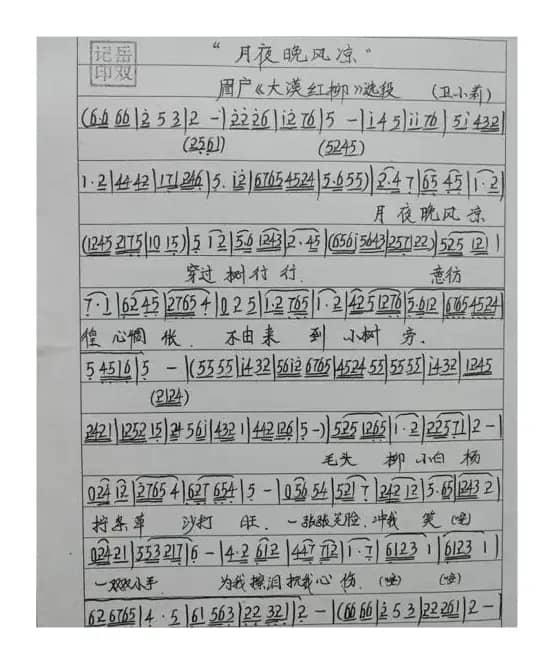 岳双
记印
“月夜晚风凉”
眉户《大漠红柳》选段 (卫小莉)
(66 66|2 5 3|2 -|22 26|i2 76|5 -|i 4 5|ii 76|5i 432|
(2561) (5245)
1·2|44 42|171 246|5. i2|6765 4524|5.6 55)|2·4 7|65 45|1·2|
月夜晚风凉
(1245 2175|10 15)|5 12|5.6 1243|2·45|(656i 5643|257 22)|525 121|
穿过树行行. 意彷
7·1|62 45|2765 4|0 2 5|1·2 765|1·2|425 1276|5·612|6765 4524|
徨心惆怅. 不由来到小树旁.
5 4516|5 -|(55 55|i4 32|56i2 6765|4524 55|55 55|i4 32|1245
(2124)
2421|1252 15|24 56i|432 1|442 126|5 -)|525 1265|1·2|22571|2 -|
毛头柳小白杨
024 12|2765 4|627 654|5 -|056 54|521 7|242 12|5·65|1243 2|
拧条草沙打旺. 一张张笑脸. 冲我笑(哎)
024 21|553 217|6 -|4·2 612|447 712|1·7|6123 1|6123 1|
一双双小手. 为我擦泪抚我心伤. (哎) (哎)
62 6765|4·5|61 563|22 32|2 -|(66 66|2 5 3|22 261|2 -|